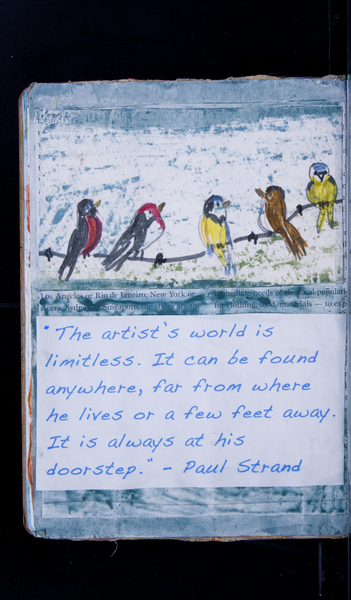 Los Angeles or Rio de Janeiro, New York or
immediate needs of the local populati
for clothing, food, materials — to exp
"The artist's world is
limitless. It can be found
anywhere, far from where
he lives or a few feet away.
It is always at his
doorstep." - Paul Strand